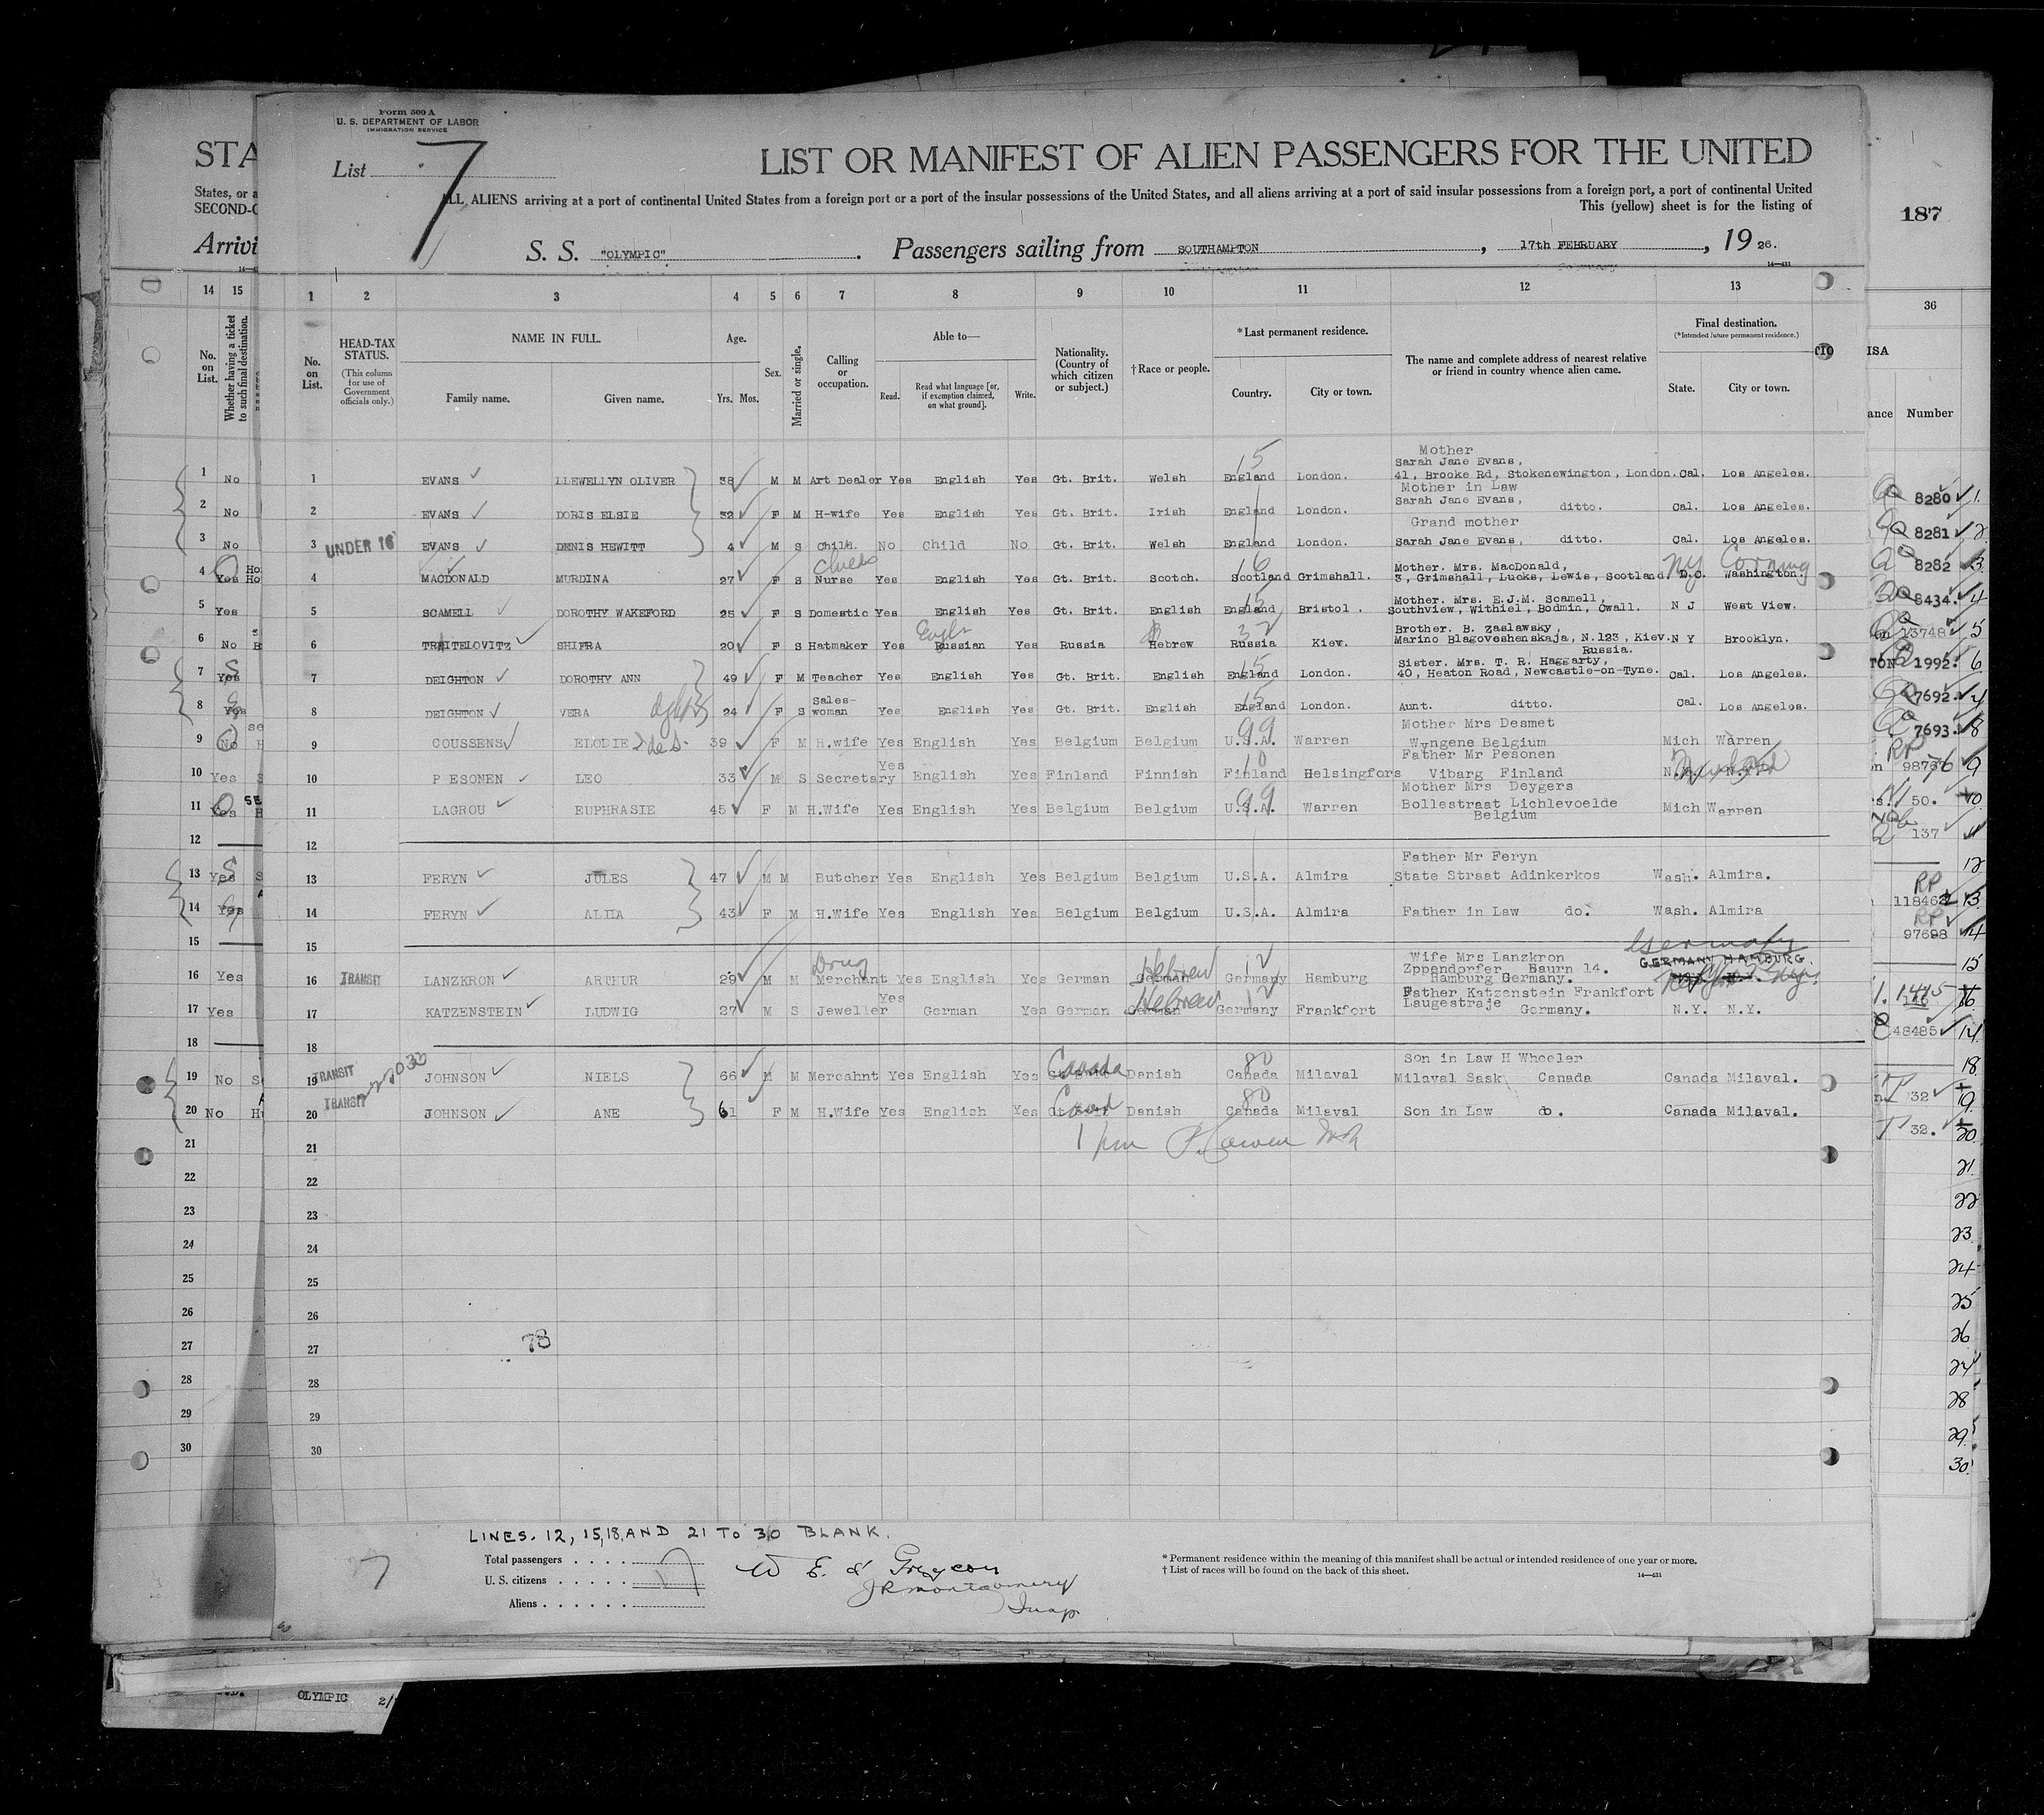 Form 500 A
U. S. DEPARTMENT OF LABOR
IMMIGRATION SERVICE
List 7
LIST OR MANIFEST OF ALIEN PASSENGERS FOR THE UNITED
ALL ALIENS arriving at a port of continental United States from a foreign port or a port of the insular possessions of the United States, and all aliens arriving at a port of said insular possessions from a foreign port, a port of continental United
This (yellow) sheet is for the listing of
S. S. "OLYMPIC". Passengers sailing from SOUTHAMPTON, 17th FEBRUARY, 1926.
STA
States, or a
SECOND-C
Arrivi
187
14 15 1 2 3 4 5 6 7 8 9 10 11 12 13 36
No. on List. Whether having a ticket to such final destination.
No. on List.
HEAD-TAX STATUS.
(This column for use of Government officials only.)
NAME IN FULL.
Family name. Given name.
Age. Yrs. Mos.
Sex.
Married or single.
Calling or occupation.
Able to—
Read. Read what language [or, if exemption claimed, on what ground]. Write.
Nationality. (Country of which citizen or subject.)
†Race or people.
*Last permanent residence.
Country. City or town.
The name and complete address of nearest relative or friend in country whence alien came.
Final destination.
(*Intended future permanent residence.)
State. City or town.
ISA
ance Number
Mother
Sarah Jane Evans,
1 No 1 EVANS LLEWELLYN OLIVER 38 M M Art Dealer Yes English Yes Gt. Brit. Welsh England London. 41, Brooke Rd, Stokenewington, London. Cal. Los Angeles.
15
Mother in Law
2 No 2 EVANS DORIS ELSIE 32 F M H-wife Yes English Yes Gt. Brit. Irish England London. Sarah Jane Evans, ditto. Cal. Los Angeles. 8280 1
Grand mother
3 No UNDER 16 3 EVANS DENIS HEWITT 4 M S Child. No Child No Gt. Brit. Welsh England London. Sarah Jane Evans, ditto. Cal. Los Angeles. 8281 2
NY Corning
Mother. Mrs. MacDonald,
4 Yes Ho 4 MACDONALD MURDINA 27 F S Nurse Yes English Yes Gt. Brit. Scotch. Scotland Grimshall. 3, Grimshall, Lucks, Lewis, Scotland D.C. Washington. 8282 3
16
Mother. Mrs. E.J.M. Scamell,
5 Yes 5 SCAMELL DOROTHY WAKEFORD 25 F S Domestic Yes English Yes Gt. Brit. English England Bristol. Southview, Withiel, Bodmin, Cwall. N J West View. 8434. 4
15
Brother. B. Zaslawsky,
6 No 6 TRAITELOVITZ SHIFRA 20 F S Hatmaker Yes Russian Yes Russia Hebrew Russia Kiew. Marino Blagoveshenskaja, N.123, Kiev. N Y Brooklyn. 13748 5
32
Russia.
Sister. Mrs. T. R. Haggarty,
7 Yes 7 DEIGHTON DOROTHY ANN 49 F M Teacher Yes English Yes Gt. Brit. English England London. 40, Heaton Road, Newcastle-on-Tyne. Cal. Los Angeles. TON 1992. 6
15
Sales-
8 Yes 8 DEIGHTON VERA 24 F S woman Yes English Yes Gt. Brit. English England London. Aunt. ditto. Cal. Los Angeles. 7692. 7
15
Mother Mrs Desmet
9 No 9 COUSSENS ELODIE 39 F M H.wife Yes English Yes Belgium Belgium U.S.A. Warren Wyngene Belgium Mich Warren 7693. 8
99
Father Mr Pesonen
10 Yes 10 P ESONEN LEO 33 M S Secretary Yes English Yes Finland Finnish Finland Helsingfors Vibarg Finland N.Y. N.Y. 9876 9
10
Mother Mrs Deygers
11 Yes 11 LAGROU EUPHRASIE 45 F M H.Wife Yes English Yes Belgium Belgium U.S.A. Warren Bollestraat Lichlevoelde Mich Warren 50. 10
99
Belgium
12 12 137 11
Father Mr Feryn
13 Yes 13 FERYN JULES 47 M M Butcher Yes English Yes Belgium Belgium U.S.A. Almira State Straat Adinkerkos Wash. Almira. 12
RP 118462 13
14 Yes 14 FERYN ALIDA 43 F M H.Wife Yes English Yes Belgium Belgium U.S.A. Almira Father in Law do. Wash. Almira
RP 97698 14
15 15
Germany
GERMANY HAMBURG.
Drug
Hebrew
Wife Mrs Lanzkron
Zppendorfer Baurn 14.
16 Yes TRANSIT 16 LANZKRON ARTHUR 29 M M Merchant Yes English Yes German German Germany Hamburg Hamburg Germany. 15
12
Hebrew
Father Katzenstein Frankfort
Laugestraje
17 Yes 17 KATZENSTEIN LUDWIG 27 M S Jeweller Yes German Yes German German Germany Frankfort Germany. N.Y. N.Y. 16
12
18 18 48485 17
Canada
Son in Law H Wheeler
19 No TRANSIT 19 JOHNSON NIELS 66 M M Mercahnt Yes English Yes Danish Canada Milaval Milaval Sask Canada Canada Milaval. 18
80
32 19
20 No TRANSIT 20 JOHNSON ANE 61 F M H.Wife Yes English Yes Danish Canada Milaval Son in Law do. Canada Milaval.
80
32. 20
21 21 21
22 22 22
23 23 23
24 24 24
25 25 25
26 26 26
27 27 27
28 28 28
29 29 29
30 30 30
78
LINES. 12, 15, 18, AND 21 TO 30 BLANK.
Total passengers . . . .
U. S. citizens . . . . .
Aliens . . . . . .
7
JR Montgomery
Insp
* Permanent residence within the meaning of this manifest shall be actual or intended residence of one year or more.
† List of races will be found on the back of this sheet.
14—431
OLYMPIC 2/